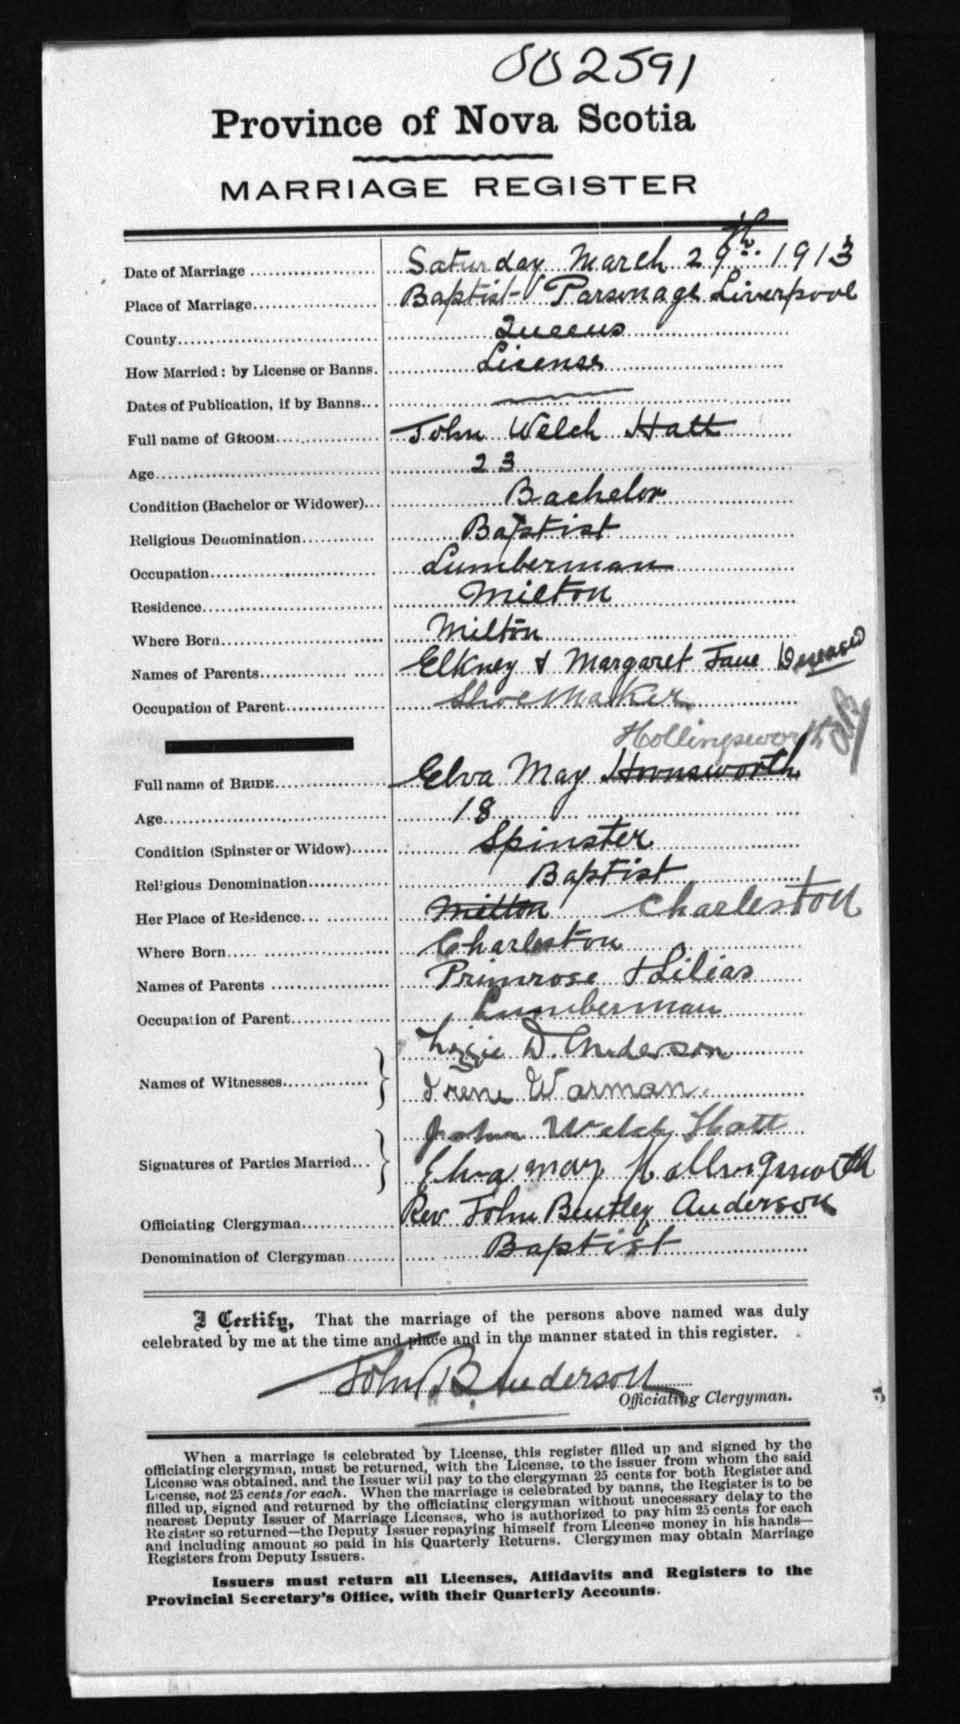 002591
Province of Nova Scotia
MARRIAGE REGISTER
Date of Marriage Saturday March 29th. 1913
Place of Marriage Baptist Parsonage Liverpool
County Queens
How Married: by License or Banns. License
Dates of Publication, if by Banns
Full name of GROOM John Welch Hatt
Age 23
Condition (Bachelor or Widower) Bachelor
Religious Denomination Baptist
Occupation Lumberman
Residence Milton
Where Born Milton
Names of Parents Elkney & Margaret Jane Deceased
Occupation of Parent Shoemaker
Hollingsworth
Full name of BRIDE Elva May Hornsworth
Age 18
Condition (Spinster or Widow) Spinster
Religious Denomination Baptist
Her Place of Residence Milton Charleston
Where Born Charleston
Names of Parents Primrose & Lilias
Occupation of Parent Lumberman
Names of Witnesses Lizzie D. Anderson
Irene Warman
Signatures of Parties Married John Welch Hatt
Elva may Hollingsworth
Officiating Clergyman Rev John Bentley Anderson
Denomination of Clergyman Baptist
I Certify, That the marriage of the persons above named was duly
celebrated by me at the time and place and in the manner stated in this register.
John B. Anderson
Officiating Clergyman.
When a marriage is celebrated by License, this register filled up and signed by the
officiating clergyman, must be returned, with the License, to the issuer from whom the said
License was obtained, and the Issuer will pay to the clergyman 25 cents for both Register and
License, not 25 cents for each. When the marriage is celebrated by banns, the Register is to be
filled up, signed and returned by the officiating clergyman without unnecessary delay to the
nearest Deputy Issuer of Marriage Licenses, who is authorized to pay him 25 cents for each
Register so returned—the Deputy Issuer repaying himself from License money in his hands—
and including amount so paid in his Quarterly Returns. Clergymen may obtain Marriage
Registers from Deputy Issuers.
Issuers must return all Licenses, Affidavits and Registers to the
Provincial Secretary's Office, with their Quarterly Accounts.